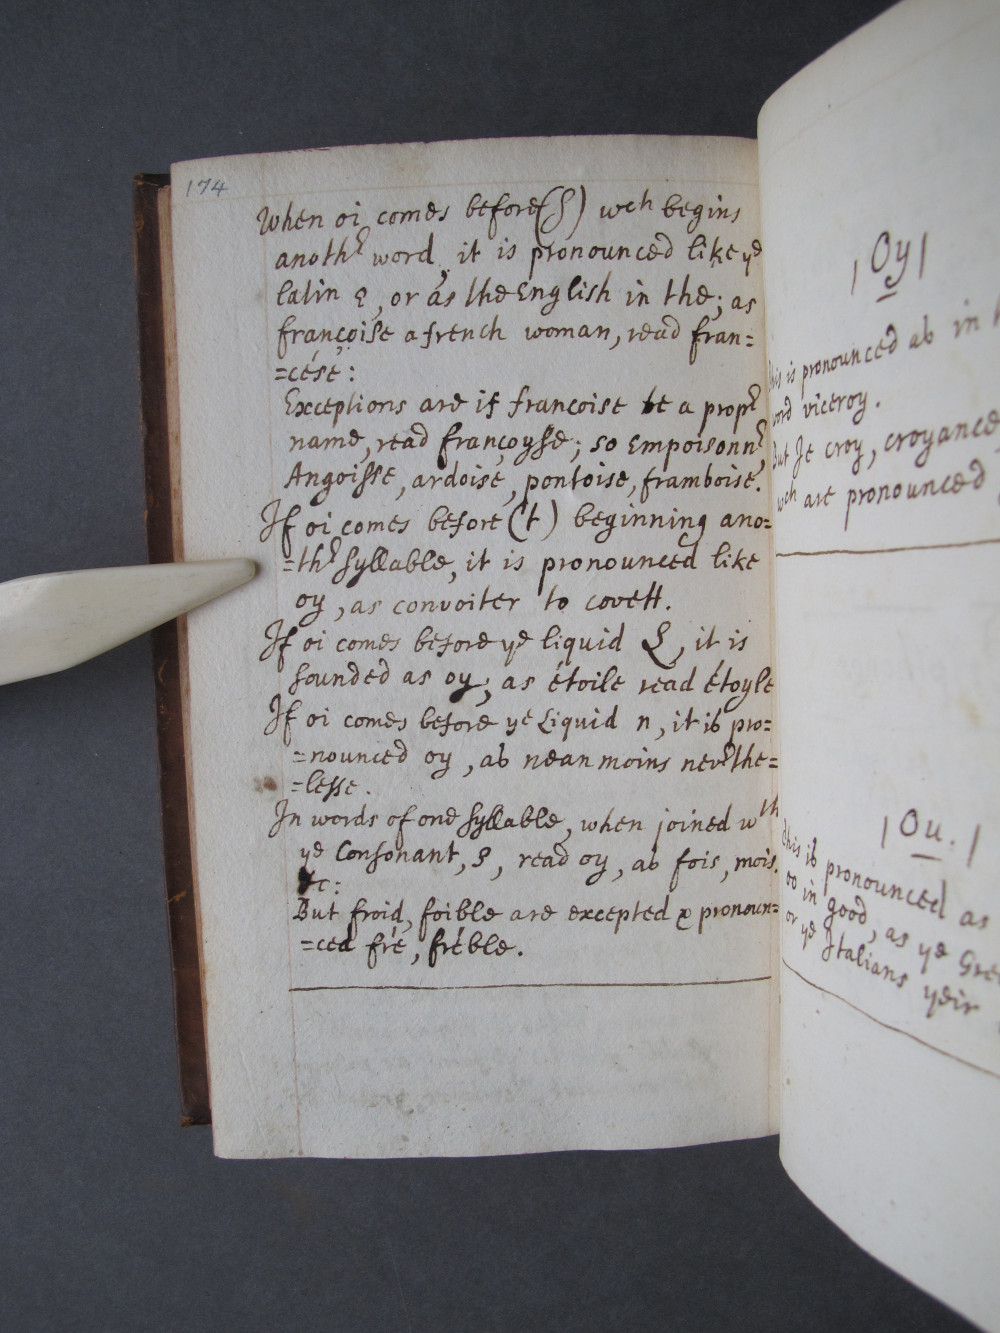 174
When oi comes before (S) wch begins
anothr word, it is pronounced like ye
latin e, or as the English in the; as
françoise a french woman, read fran=
=césé:
Exceptions are if francoise be a propr
name, read françoyse; so empoisonnr,
Angoisse, ardoise, pontoise, framboise.
If oi comes before (t) beginning ano=
=thr syllable, it is pronounced like
oy, as convoiter to covett.
If oi comes before ye liquid L, it is
sounded as oy; as étoile read étoyle
If oi comes before ye Liquid n, it is pro=
=nounced oy, as neanmoins nevrthe=
=lesse.
In words of one syllable, when joined wth
ye Consonant, S, read oy, as fois, mois.
&c:
But froid, foible are excepted & pronoun=
=ced fré, fréble.
|Oy|
this is pronounced as in
word viceroy.
But Je croy, croyance
wch are pronounced
|Ou.|
this is pronounced as
oo in good, as ye Gre
or ye Italians yeir